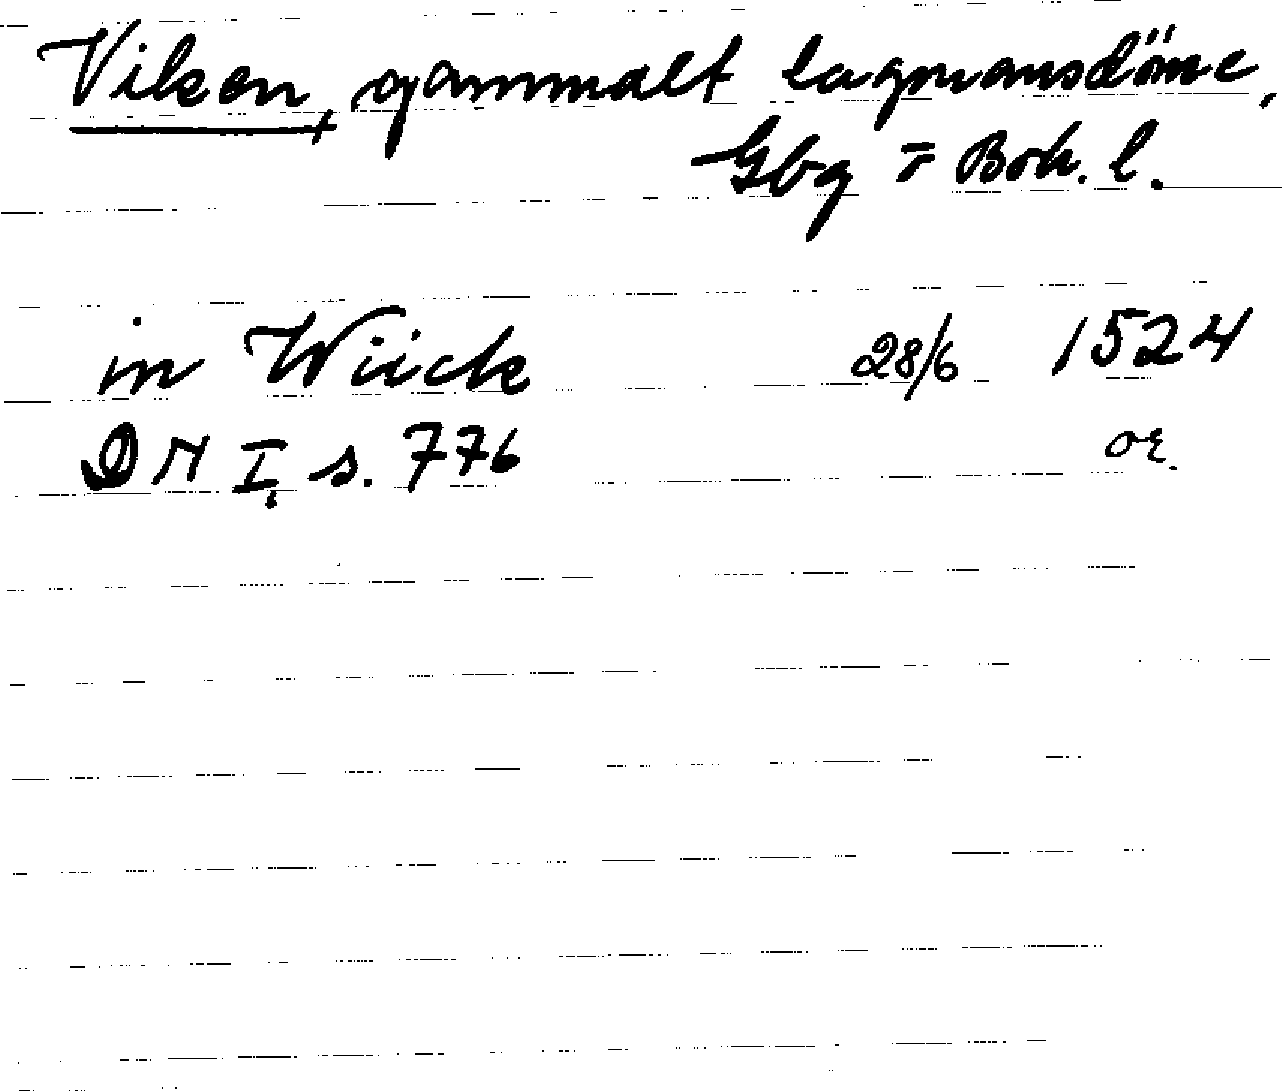 Viken, gammalt lagmansdöme,
Gbg o Boh. l.
in Wiick 28/6 1524
DN I, s. 776 or.